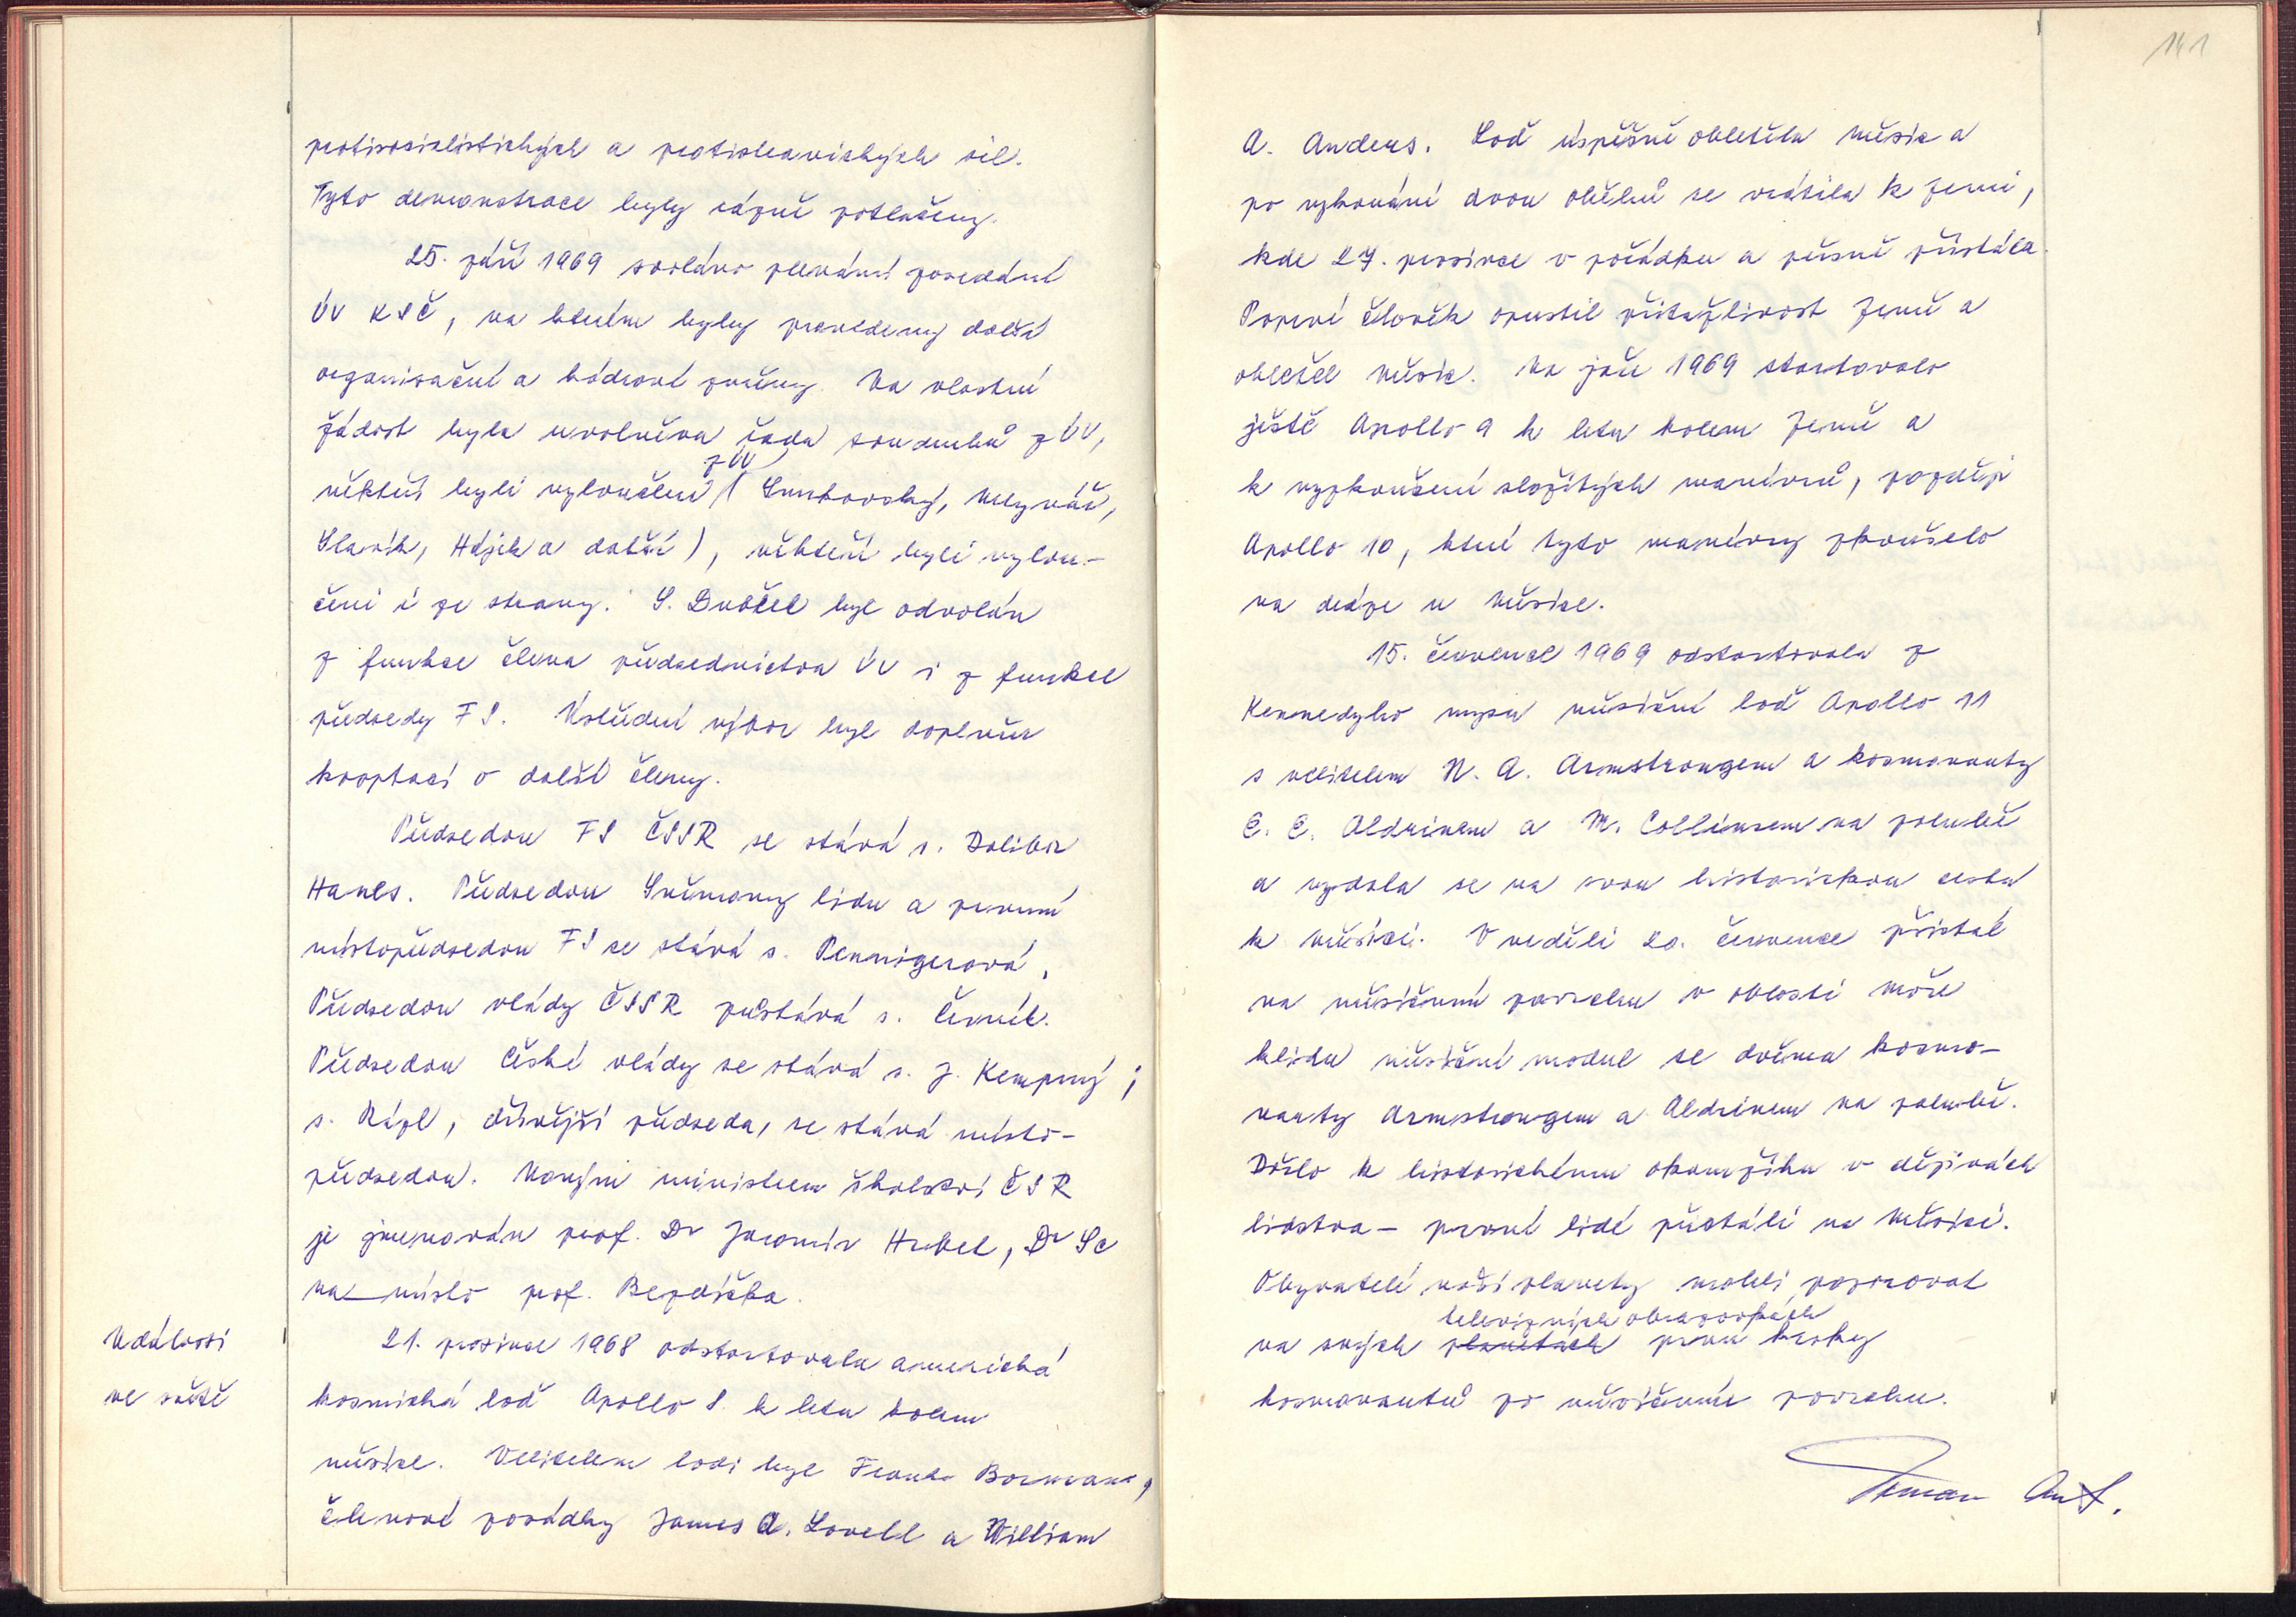 protisocialistických a protisovětských sil.
Tyto demonstrace byly rázně potlačeny.
25. září 1969 svoláno plenární zasedání
ÚV KSČ, na kterém byly provedeny další
organisační a kádrové změny. Na vlastní
žádost byla uvolněna řada soudruhů z ÚV,
někteří byli vyloučeni z ÚV (Smrkovský, Mlynář,
Slavík, Hájek a další), někteří byli vylou-
čeni i ze strany. S. Dubček byl odvolán
z funkce člena předsednictva ÚV i z funkce
předsedy FS. Ústřední výbor byl doplněn
kooptací o další členy.
Předsedou FS ČSSR se stává s. Dalibor
Hanes. Předsedou Sněmovny lidu a prvním
místopředsedou FS se stává s. Pennigerová,
Předsedou vlády ČSSR zůstává s. Černík.
Předsedou České vlády se stává s. J. Kempný;
s. Rázl, dřívější předseda, se stává místo-
předsedou. Novým ministrem školství ČSR
je jmenován prof. Dr Jaromír Hrbek, Dr Sc
na místo prof. Bezdíčka.
Události
ve světě
21. prosince 1968 odstartovala americká
kosmická loď Apollo 8. k letu kolem
měsíce. Velitelem lodi byl Frank Bormann,
členové posádky James A. Lovell a William
141
A. Anders. Loď úspěšně obletěla měsíc a
po vykonání dvou oběhů se vrátila k Zemi,
kde 27. prosince v pořádku a přesně přistála.
Poprvé člověk opustil přitažlivost Země a
obletěl měsíc. Na jaře 1969 startovalo
ještě Apollo 9 k letu kolem Země a
k vyzkoušení složitých manévrů, později
Apollo 10, které tyto manévry zkoušelo
na dráze u Měsíce.
15. července 1969 odstartovala z
Kennedyho mysu měsíční loď Apollo 11
s velitelem N. A. Armstrongem a kosmonauty
E. E. Aldrinem a M. Collinsem na palubě
a vydala se na svou historickou cestu
k měsíci. V neděli 20. července přistál
na měsíčním povrchu v oblasti moře
klidu měsíční modul se dvěma kosmo-
nauty Armstrongem a Aldrinem na palubě.
Došlo k historickému okamžiku v dějinách
lidstva - první lidé přistáli na Měsíci.
Obyvatelé naší planety mohli pozorovat
televizních obrazovkách
na svých planetách první kroky
kosmonautů po měsíčním povrchu.
Ant.